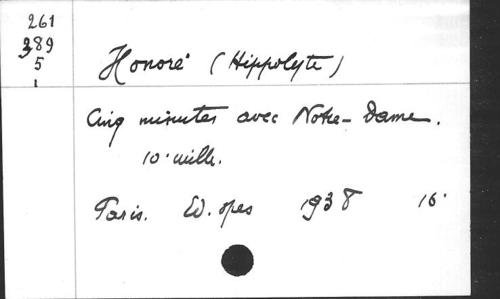 261
389
5
1
Honoré (Hippolyte)
Cinq minutes avec Notre-Dame.
10° mille.
Paris. Ed. Spes 1938 16°